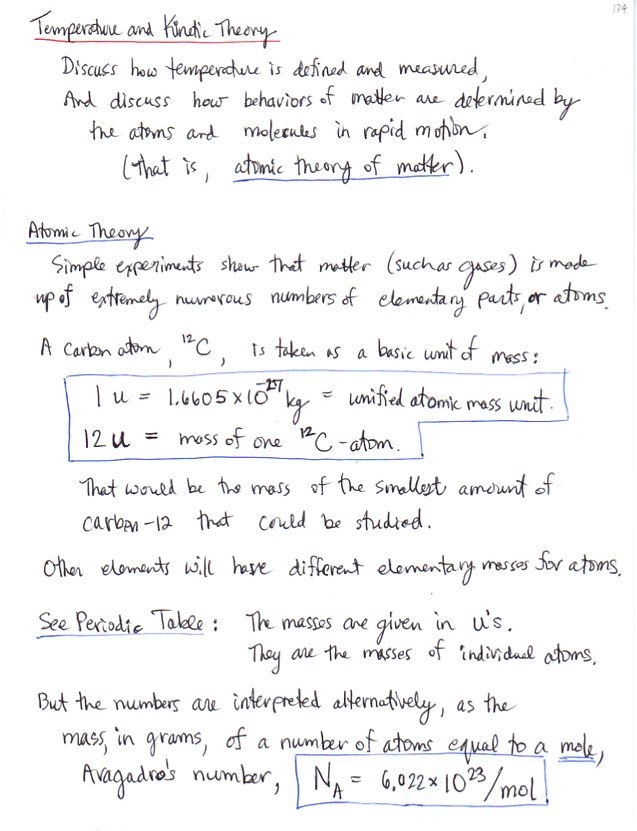 134
Temperature and Kinetic Theory
Discuss how temperature is defined and measured,
And discuss how behaviors of matter are determined by
the atoms and molecules in rapid motion.
(that is, atomic theory of matter).
Atomic Theory
Simple experiments show that matter (such as gases) is made
up of extremely numerous numbers of elementary parts, or atoms.
A carbon atom, ¹²C, is taken as a basic unit of mass:
1 u = 1.6605×10⁻²⁷ kg = unified atomic mass unit.
12 u = mass of one ¹²C-atom.
That would be the mass of the smallest amount of
carbon-12 that could be studied.
Other elements will have different elementary masses for atoms.
See Periodic Table: The masses are given in u's.
They are the masses of individual atoms.
But the numbers are interpreted alternatively, as the
mass, in grams, of a number of atoms equal to a mole,
Avagadro's number, N_A = 6.022×10²³/mol